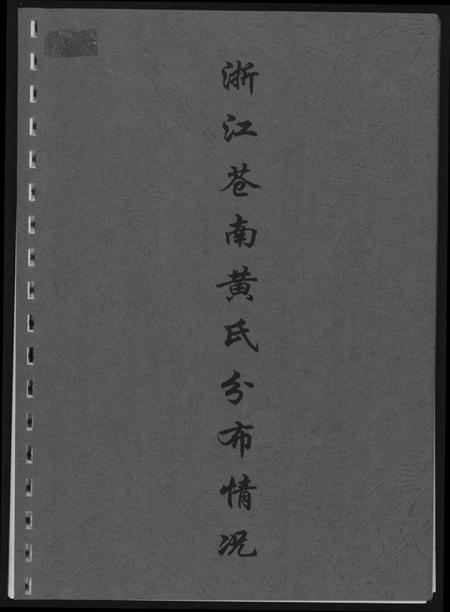 浙江苍南黄氏分布情况